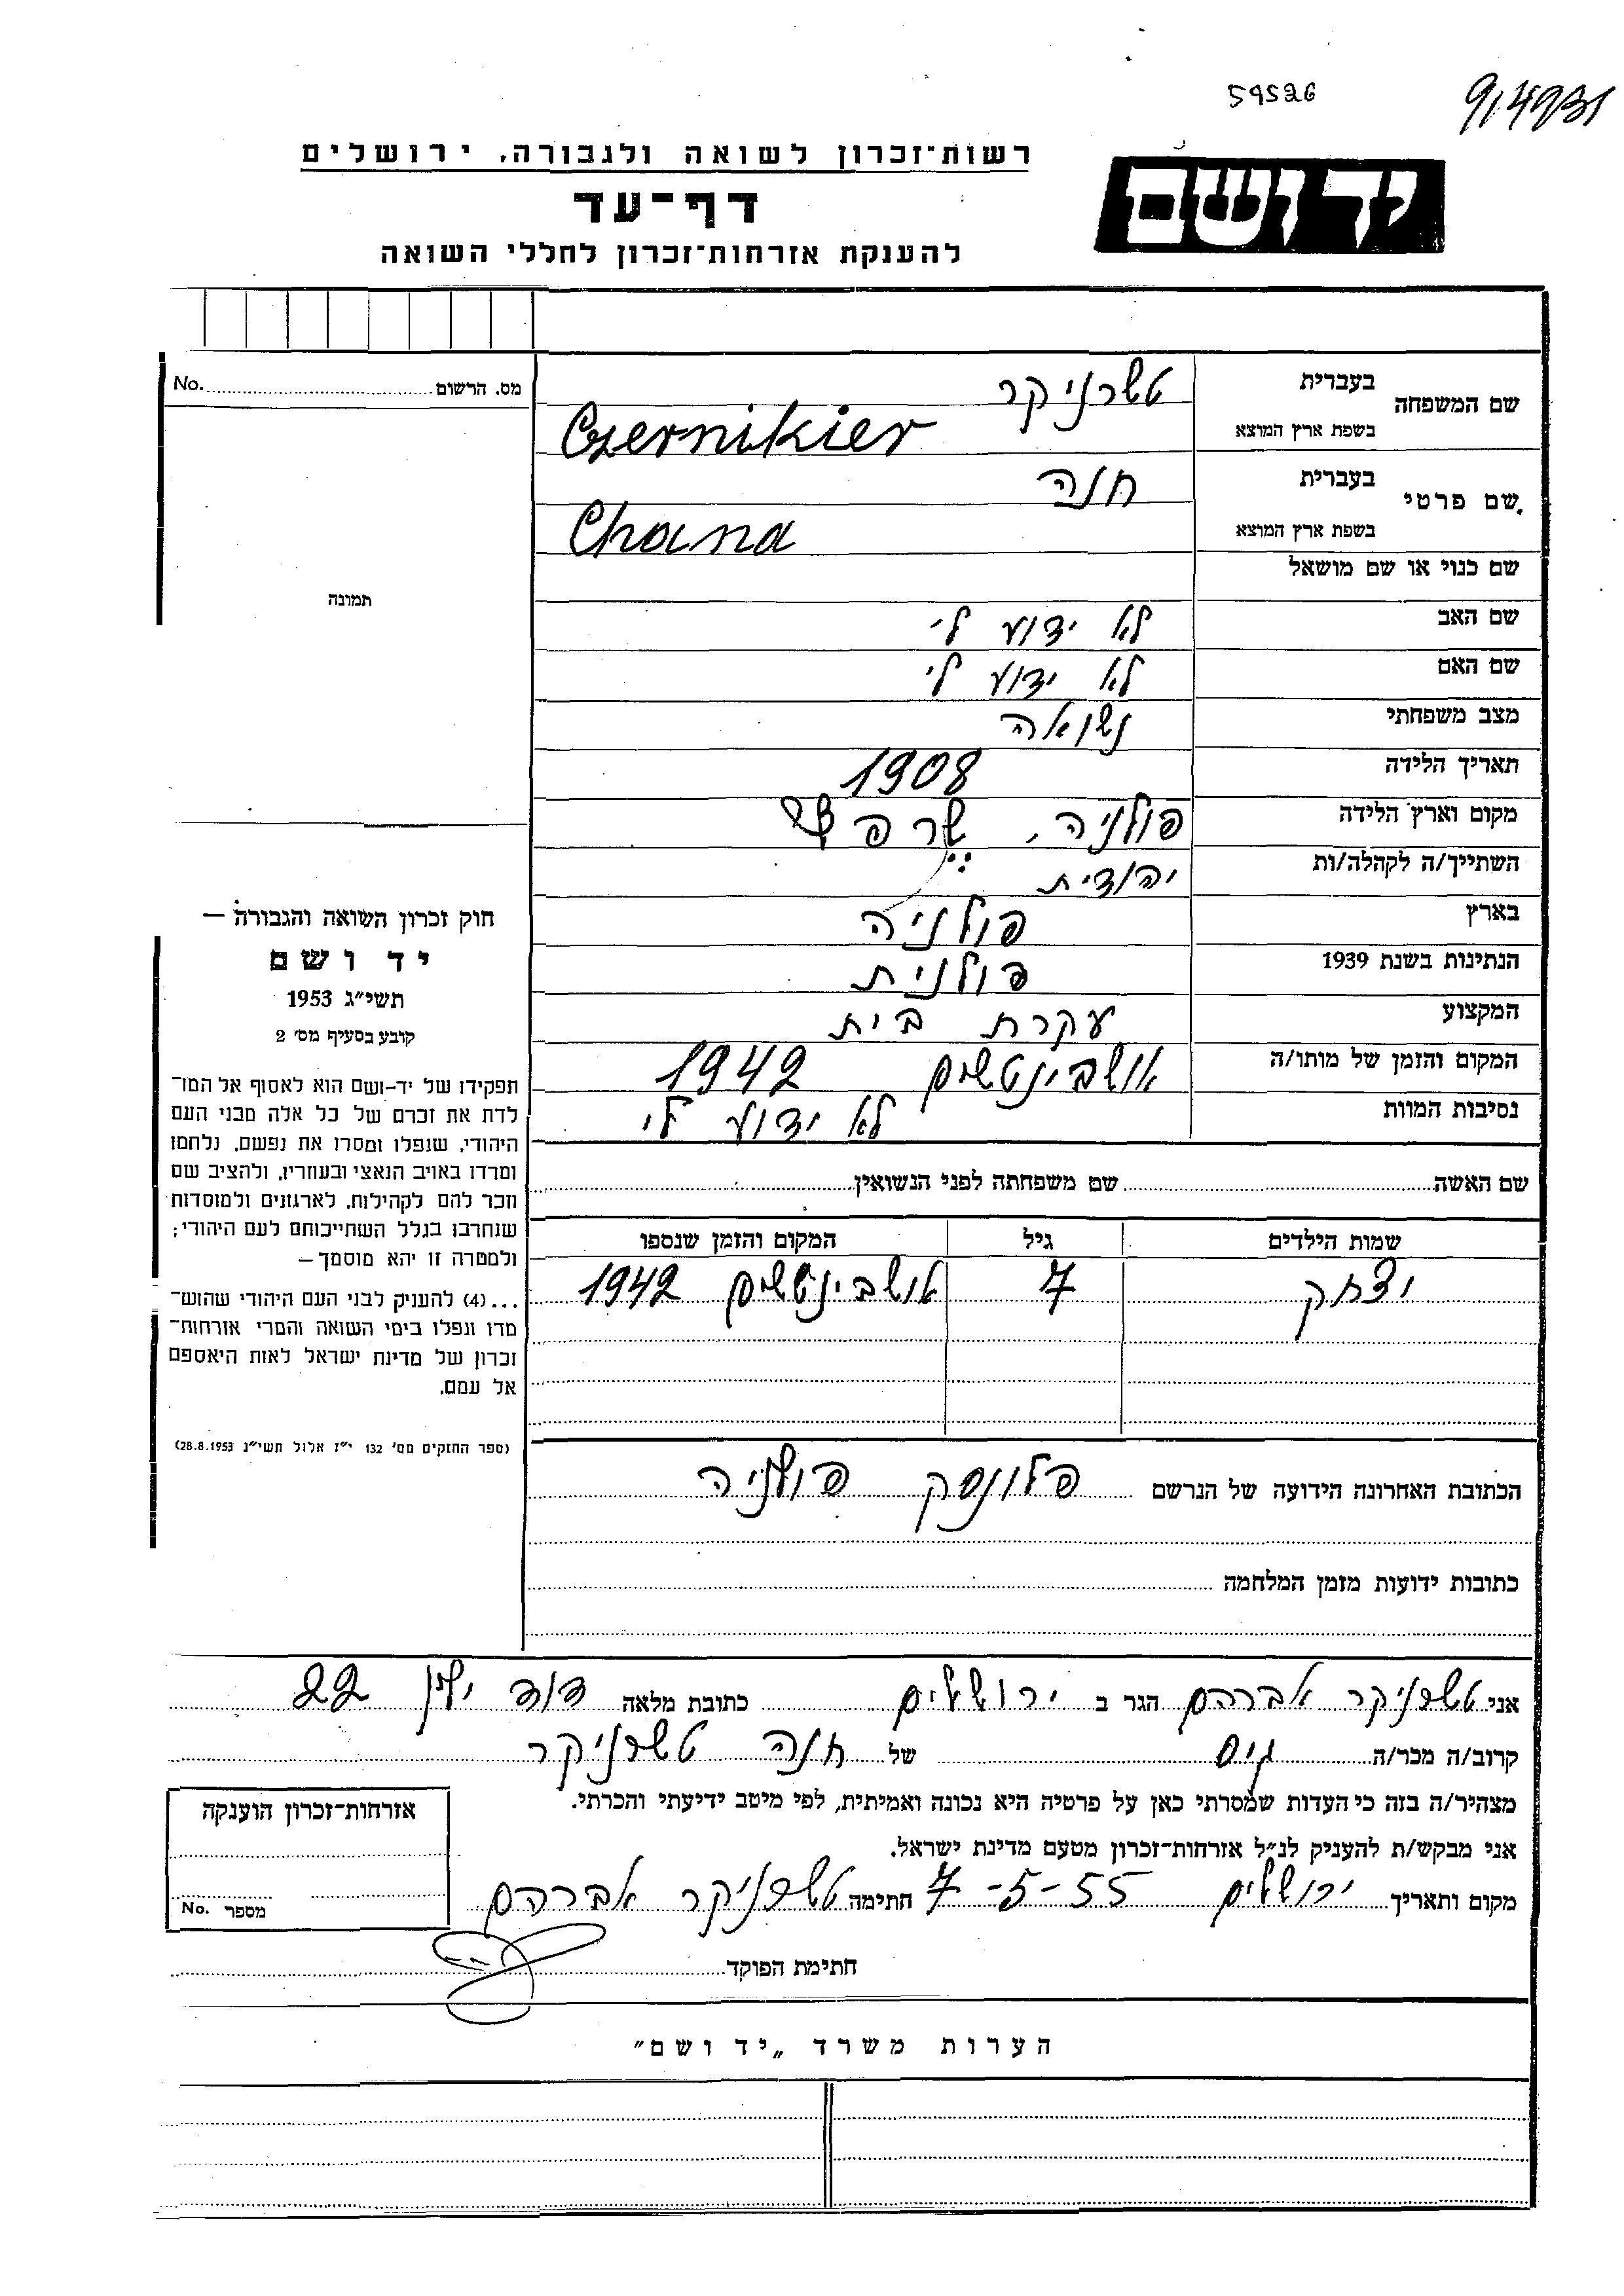 59526
רשות־זכרון לשואה ולגבורה, ירושלים
יד ושם
דף־עד
להענקת אזרחות־זכרון לחללי השואה
שם המשפחה בעברית טשרניקר
בשפת ארץ המוצא Czernikier
שם פרטי בעברית חנה
בשפת ארץ המוצא Chana
שם כנוי או שם מושאל
שם האב לא ידוע לי
שם האם לא ידוע לי
מצב משפחתי נשואה
תאריך הלידה 1908
מקום וארץ הלידה פולניה,
השתייך/ה לקהלה/ות יהודית
בארץ פולניה
הנתינות בשנת 1939 פולנית
המקצוע עקרת בית
המקום והזמן של מותו/ה אושבינטשים 1942
נסיבות המוות לא ידוע לי
שם האשה שם משפחתה לפני הנשואין
שמות הילדים גיל המקום והזמן שנספו
יצחק 7 אושבינטשים 1942
הכתובת האחרונה הידועה של הנרשם פלונסק פולניה
כתובות ידועות מזמן המלחמה
מס. הרשום No.
תמונה
חוק זכרון השואה והגבורה —
יד ושם
תשי״ג 1953
קובע בסעיף מס׳ 2
תפקידו של יד-ושם הוא לאסוף אל המו־
לדת את זכרם של כל אלה מבני העם
היהודי, שנפלו ומסרו את נפשם, נלחמו
ומרדו באויב הנאצי ובעוזריו, ולהציב שם
וזכר להם לקהילות, לארגונים ולמוסדות
שנחרבו בגלל השתייכותם לעם היהודי;
ולמטרה זו יהא מוסמך —
...(4) להעניק לבני העם היהודי שהוש־
מדו ונפלו בימי השואה והמרי אזרחות־
זכרון של מדינת ישראל לאות היאספם
אל עמם.
(ספר החוקים מס׳ 132 י״ז אלול תשי״ג 28.8.1953)
אני טשרניקר אברהם הגר ב ירושלים כתובת מלאה דוד ילין 22
קרוב/ה מכר/ה גיס של חנה טשרניקר
מצהיר/ה בזה כי העדות שמסרתי כאן על פרטיה היא נכונה ואמיתית, לפי מיטב ידיעתי והכרתי.
אני מבקש/ת להעניק לנ״ל אזרחות־זכרון מטעם מדינת ישראל.
מקום ותאריך ירושלים 7-5-55 חתימה טשרניקר אברהם
אזרחות־זכרון הוענקה
מספר No.
חתימת הפוקד
הערות משרד „יד ושם״